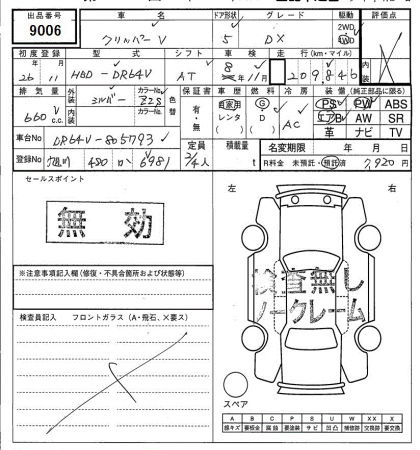 出品番号 車名 ドア形状 グレード 駆動 評価点
9006 クリッパーV 5 DX 2WD 4WD
初度登録 型式 シフト 車検 走行(km・マイル)
26年 11月 HBD-DR64V AT 8年 11月 209846
排気量 外装 シルバー カラーNo. Z2S 色替 保証書 車歴 燃料 冷房 装備(純正部品に限る)
660 c.c. 内装 カラーNo. 有・無 自家用 レンタ G D AC PS PW ABS
エアB AW SR
革 ナビ TV
車台No DR64V-805793 定員 積載量 名変期限 年 月 日
登録No 480 か 6981 2/4人 t R料金 未預託・預託済 7,920円
セールスポイント
左 右
無効
※注意事項記入欄(修復・不具合箇所および状態等)
検査無し
ノークレーム
検査員記入 フロントガラス(A・飛石、×要ス)
スペア
A B C P S U W X XX X
線キズ 要板金 腐蝕 要塗装 サビ 凹凸 補修跡 交換跡 要交換